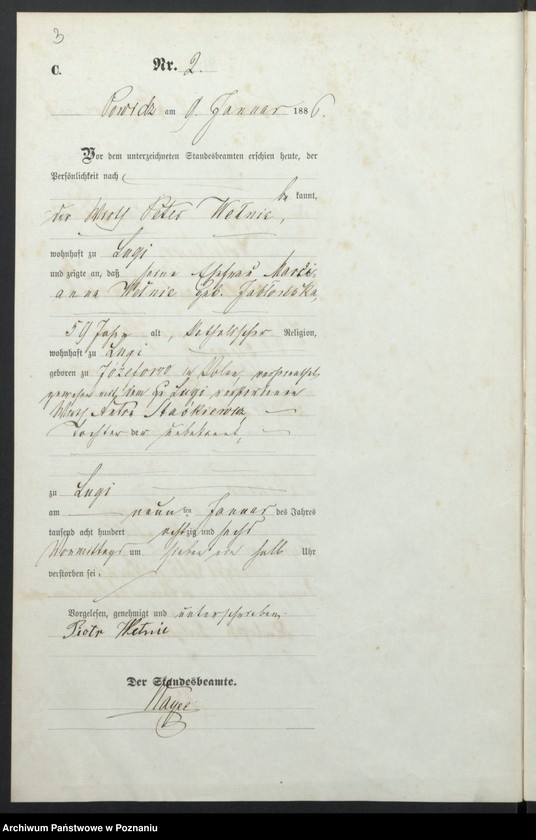 3
C.
Nr. 2.
Powidz am 9. Januar 1886.
Vor dem unterzeichneten Standesbeamten erschien heute, der
Persönlichkeit nach
be kannt,
der Wirth Peter Wełnic,
wohnhaft zu Lugi
und zeigte an, daß seine Ehefrau Mari-
anna Wełnic geb. Jabłońska,
59 Jahr alt, katholischer Religion,
wohnhaft zu Lugi
geboren zu Józefowo in Polen,
gewesen mit dem zu Lugi verstorbenen
Wirth
Tochter der unbekannt,
zu Lugi
am neun ten Januar des Jahres
tausend acht hundert achtzig und sechs
Vormittags um sieben ein halb Uhr
verstorben sei.
Vorgelesen, genehmigt und unterschrieben.
Piotr Wełnic
Der Standesbeamte.
Archiwum Państwowe w Poznaniu